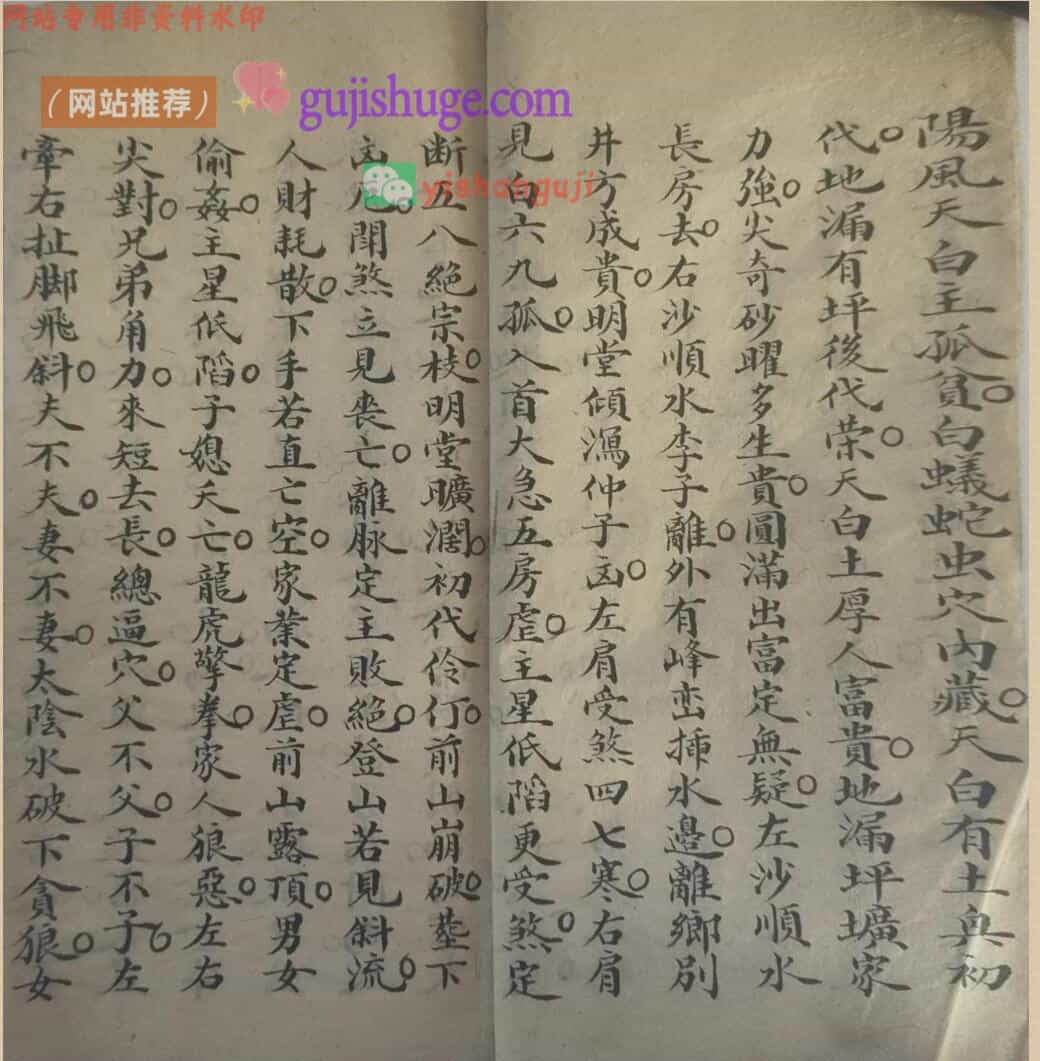 网站专用非资料水印
（网站推荐）
gujishuge.com
yishanguji
陽風天白主孤貧。白蟻蛇虫穴内藏。天白有土興初
代。地漏有坪後代荣。天白土厚人富貴。地漏坪壙家
力強。尖奇砂曜多生貴。圓滿出富定無疑。左沙順水
長房去。右沙順水李子離。外有峰峦揷水邊。離鄉別
井方成貴。明堂傾瀉仲子凶。左肩受煞四七寒。右肩
見白六九孤。入首大急五房虗。主星低陷更受煞。定
断五八絶宗枝。明堂曠濶。初代伶仃。前山崩破。塟下
凶危。閗煞立見丧亡。離脉定主敗絶。登山若見斜流。
人財耗散。下手若直亡空。家業定虗。前山露頂。男女
偷姦。主星低陷。子媳夭亡。龍虎擎拳。家人狼惡。左右
尖對。兄弟角力。來短去長。總逼穴。父不父。子不子。左
牽右扯脚飛斜。夫不夫。妻不妻。太陰水破下貪狼。女